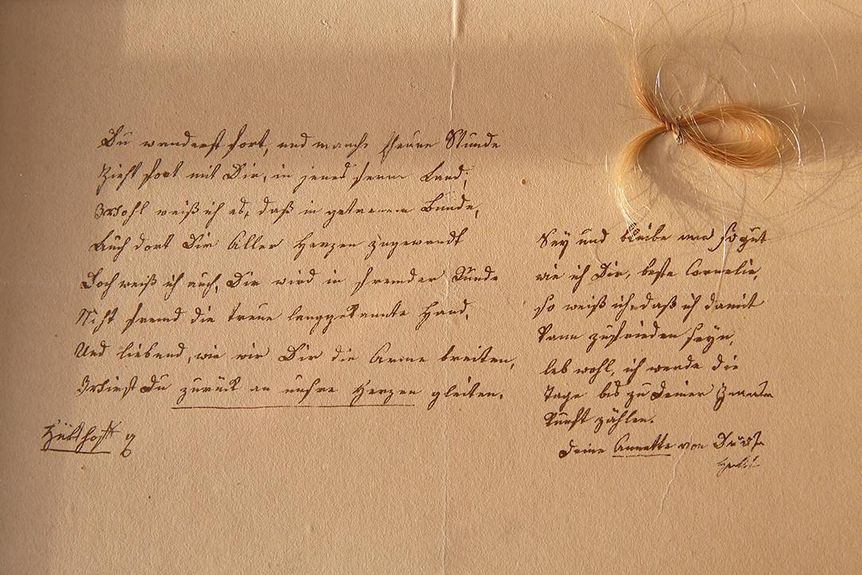 Du wanderst fort, und manche schöne Stunde
Zieht fort mit Dir, in jenes ferne Land;
Wohl weiß ich es, daß in getreuem Bunde,
Auch dort Dir Aller Herzen zugewandt
Doch weiß ich auch, Dir wird in fremder Runde
Nicht fremd die treue langgekannte Hand,
Und liebend, wie wir Dir die Arme breiten,
Wirst Du zurück an unsre Herzen gleiten.
Hülshoff
Sey und bleibe mir so gut
wie ich Dir, beste Cornelie,
so weiß ich daß ich damit
kann zufrieden seyn,
leb wohl, ich werde die
Tage bis zu Deiner
kunft zählen.
Deine Annette von Droste